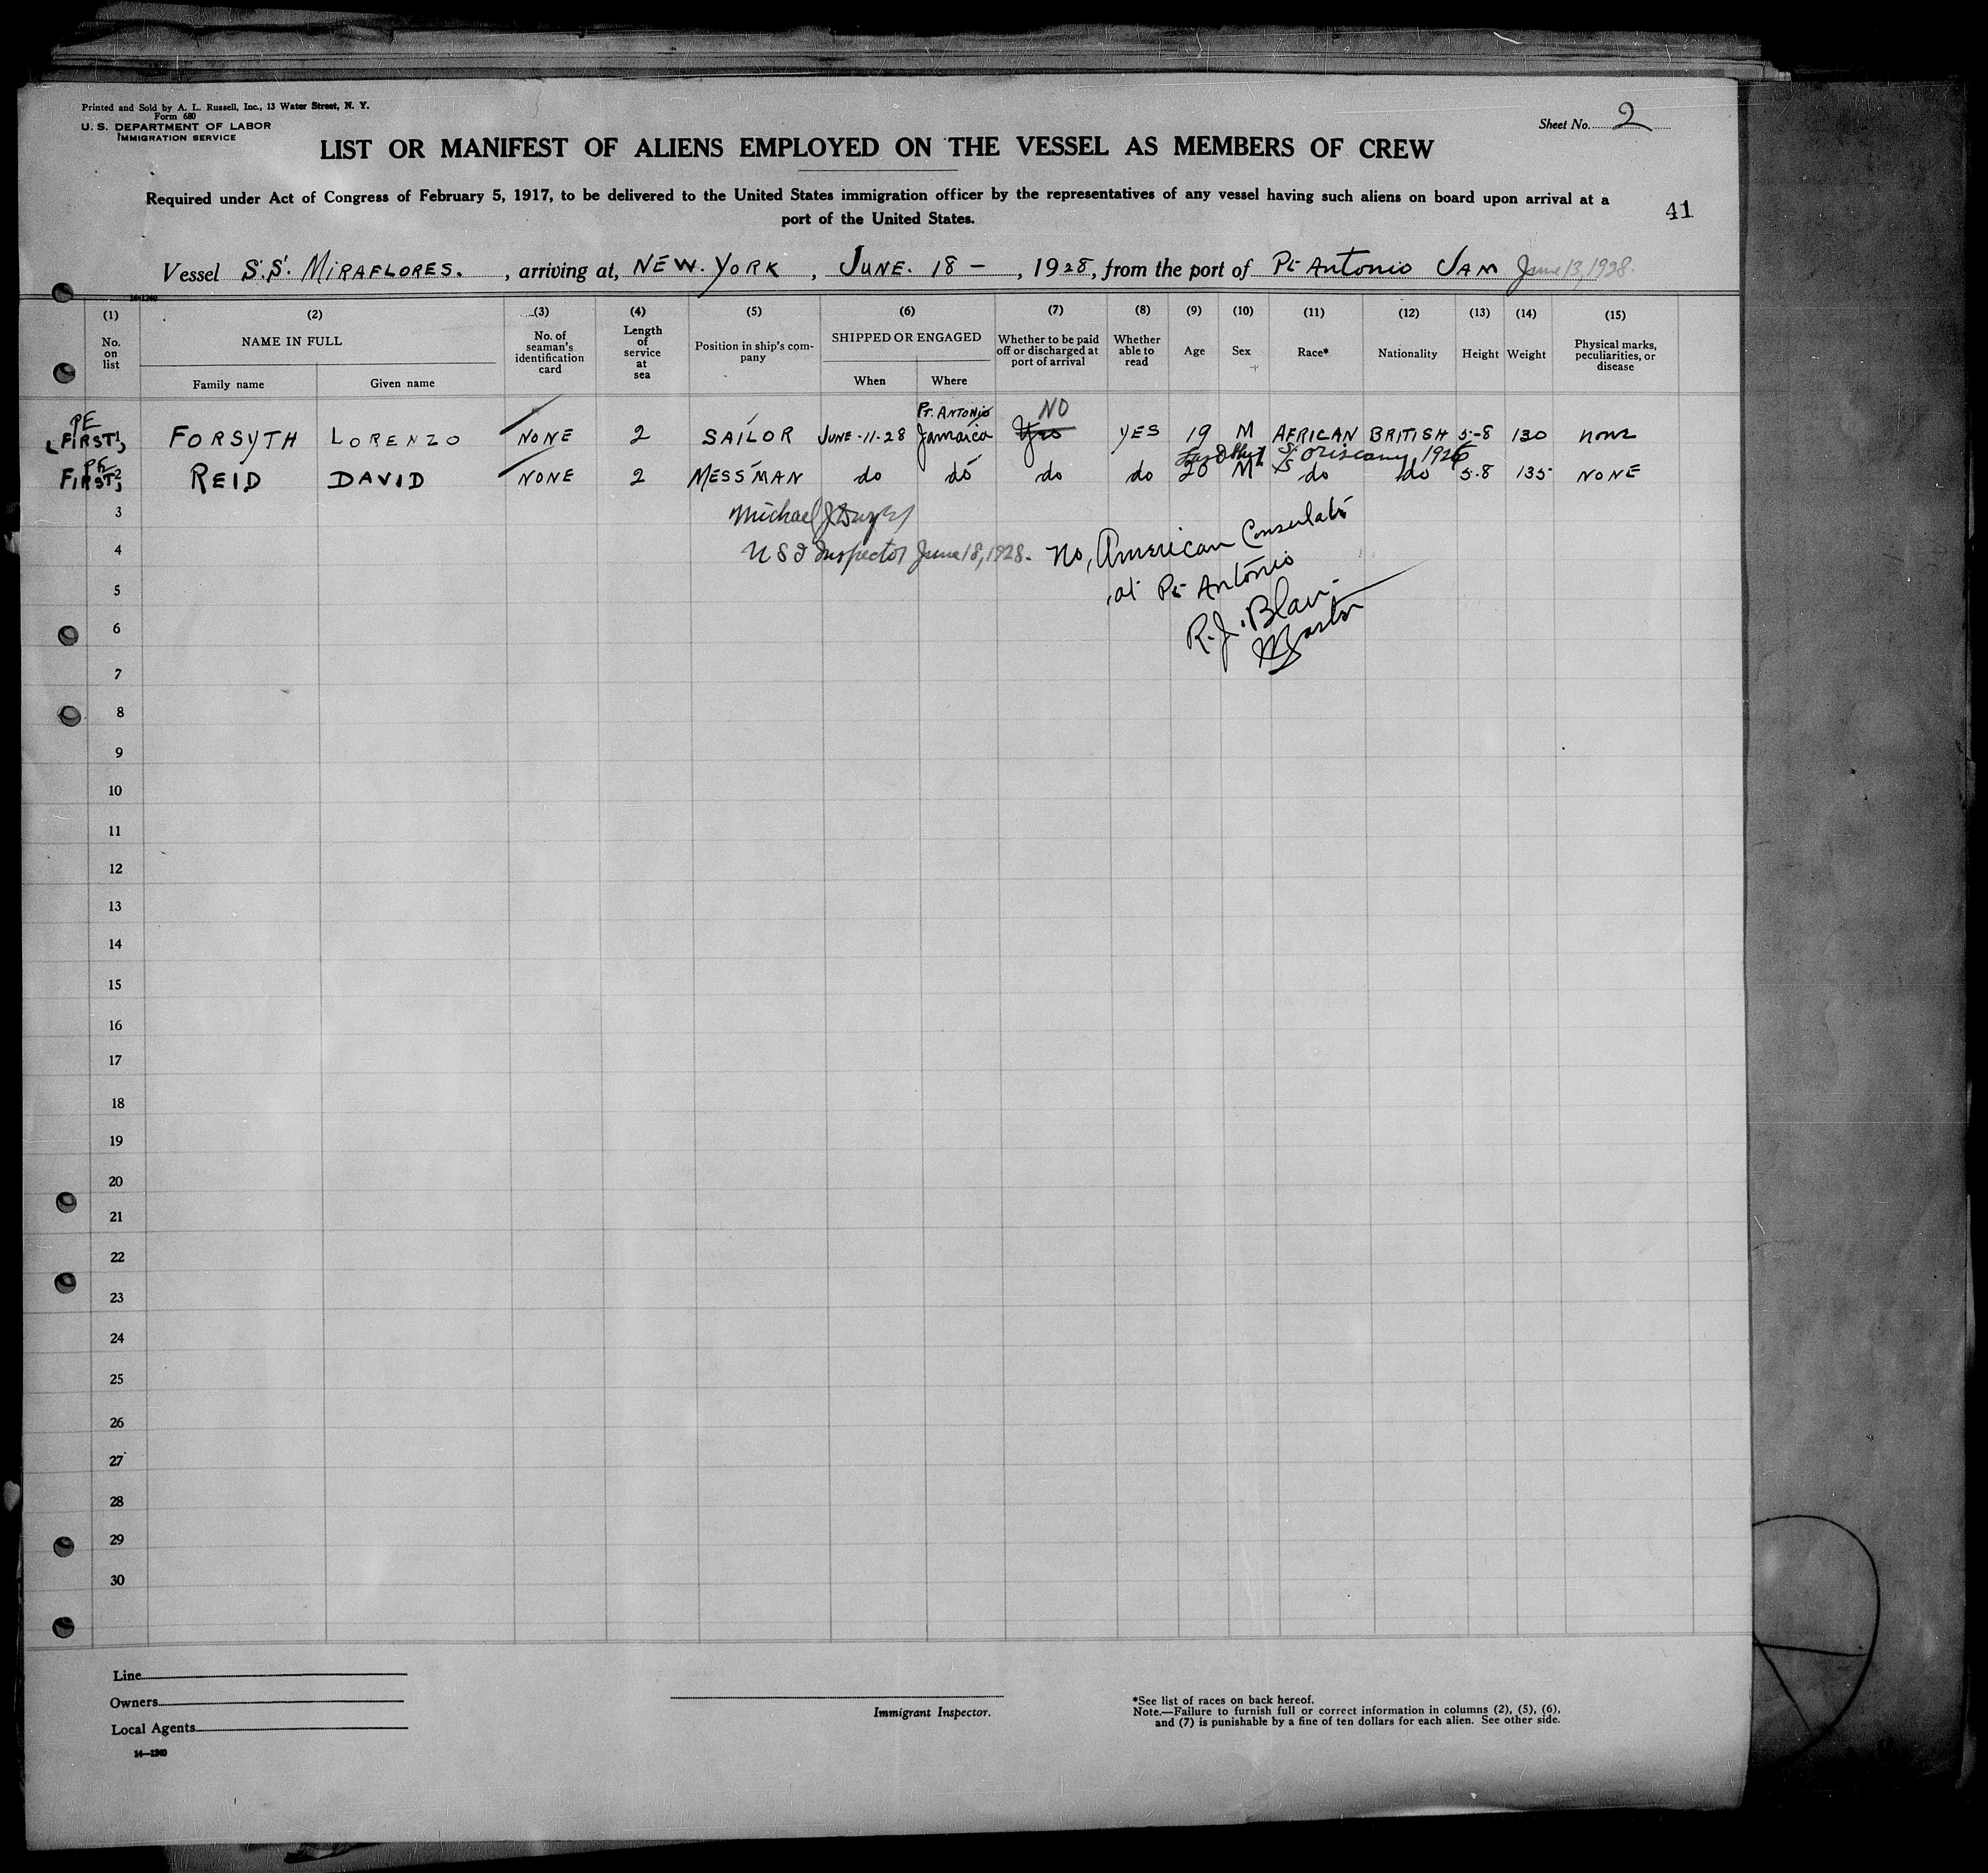 Printed and Sold by A. L. Russell, Inc., 13 Water Street, N. Y.
Form 680
U. S. DEPARTMENT OF LABOR
IMMIGRATION SERVICE
Sheet No. 2
LIST OR MANIFEST OF ALIENS EMPLOYED ON THE VESSEL AS MEMBERS OF CREW
Required under Act of Congress of February 5, 1917, to be delivered to the United States immigration officer by the representatives of any vessel having such aliens on board upon arrival at a
port of the United States.
41
Vessel S.S. MIRAFLORES., arriving at, NEW. YORK, JUNE. 18 -, 1928, from the port of Pt Antonio JAM June 13, 1928.
14-1240
(1) (2) (3) (4) (5) (6) (7) (8) (9) (10) (11) (12) (13) (14) (15)
No. on list
NAME IN FULL
Family name
Given name
No. of seaman's identification card
Length of service at sea
Position in ship's company
SHIPPED OR ENGAGED
When
Where
Whether to be paid off or discharged at port of arrival
Whether able to read
Age
Sex
Race*
Nationality
Height
Weight
Physical marks, peculiarities, or disease
PE PT. ANTONIO NO
(FIRST) 1 FORSYTH LORENZO NONE 2 SAILOR JUNE-11-28 Jamaica Yes YES 19 M AFRICAN BRITISH 5-8 130 none
Oriscany 1926
FIRST 2 REID DAVID NONE 2 MESSMAN do do do do 20 M do do 5.8 135 NONE
3 Michael J
4 U S I Inspector June 18, 1928. No, American Consulate
5 at Pt Antonio
6 R. J. Blair
Master
7
8
9
10
11
12
13
14
15
16
17
18
19
20
21
22
23
24
25
26
27
28
29
30
Line
Owners
Local Agents
14—1240
Immigrant Inspector.
*See list of races on back hereof.
Note.—Failure to furnish full or correct information in columns (2), (5), (6),
and (7) is punishable by a fine of ten dollars for each alien. See other side.